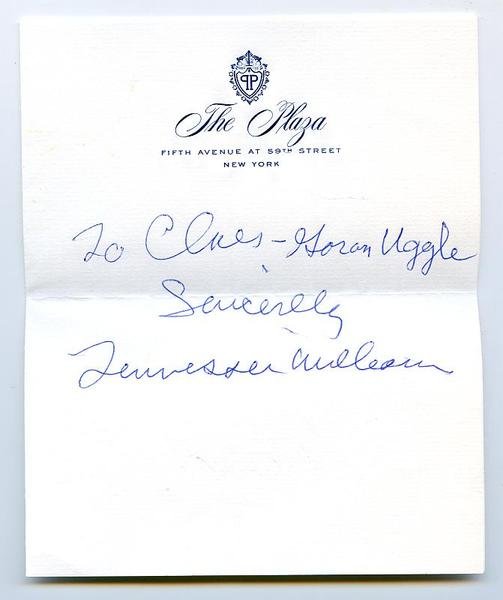 PP
The Plaza
FIFTH AVENUE AT 59TH STREET
NEW YORK
To Claes-Goran Uggle
Sincerely
Tennessee Williams